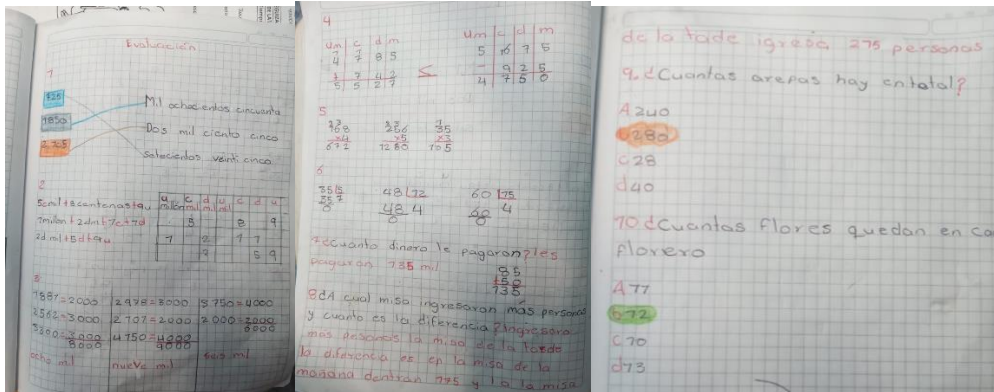 Evaluación
1
725
1850
2,105
Mil ochocientos cincuenta
Dos mil ciento cinco
setecientos veinti cinco
2
5cml+8centenas+9u
7millon+2dml+7c+7d
2dml+5d+9u
3
1887=2000
2562=3000
8000
ocho mil
2978=3000
2707=2000
4750=4000
9000
nueve mil
3750=4000
2000=2000
6000
seis mil
4
um c d m
4 7 8 5
5 5 2 7
um c d m
5 16 7 5
- 9 2 5
4 7 5 0
5
168
x4
672
256
x5
1280
35
x3
105
6
35 5
35 7
0
48 12
48 4
0
60 15
60 4
0
7 ¿Cuanto dinero le pagaron? les
pagaran 135 mil
85
+50
135
8 ¿A cual misa ingresaron más personas
y cuanto es la diferencia? Ingresaro
mas personas la misa de la tarde
la diferencia es en la misa de la
mañana dentran 195 y la la misa
de la tade igresa 275 personas
9. ¿Cuantas arepas hay en total?
A 240
b 280
c 28
d 40
10 ¿Cuantas flores quedan en ca
florero
A 11
b 12
c 10
d 13